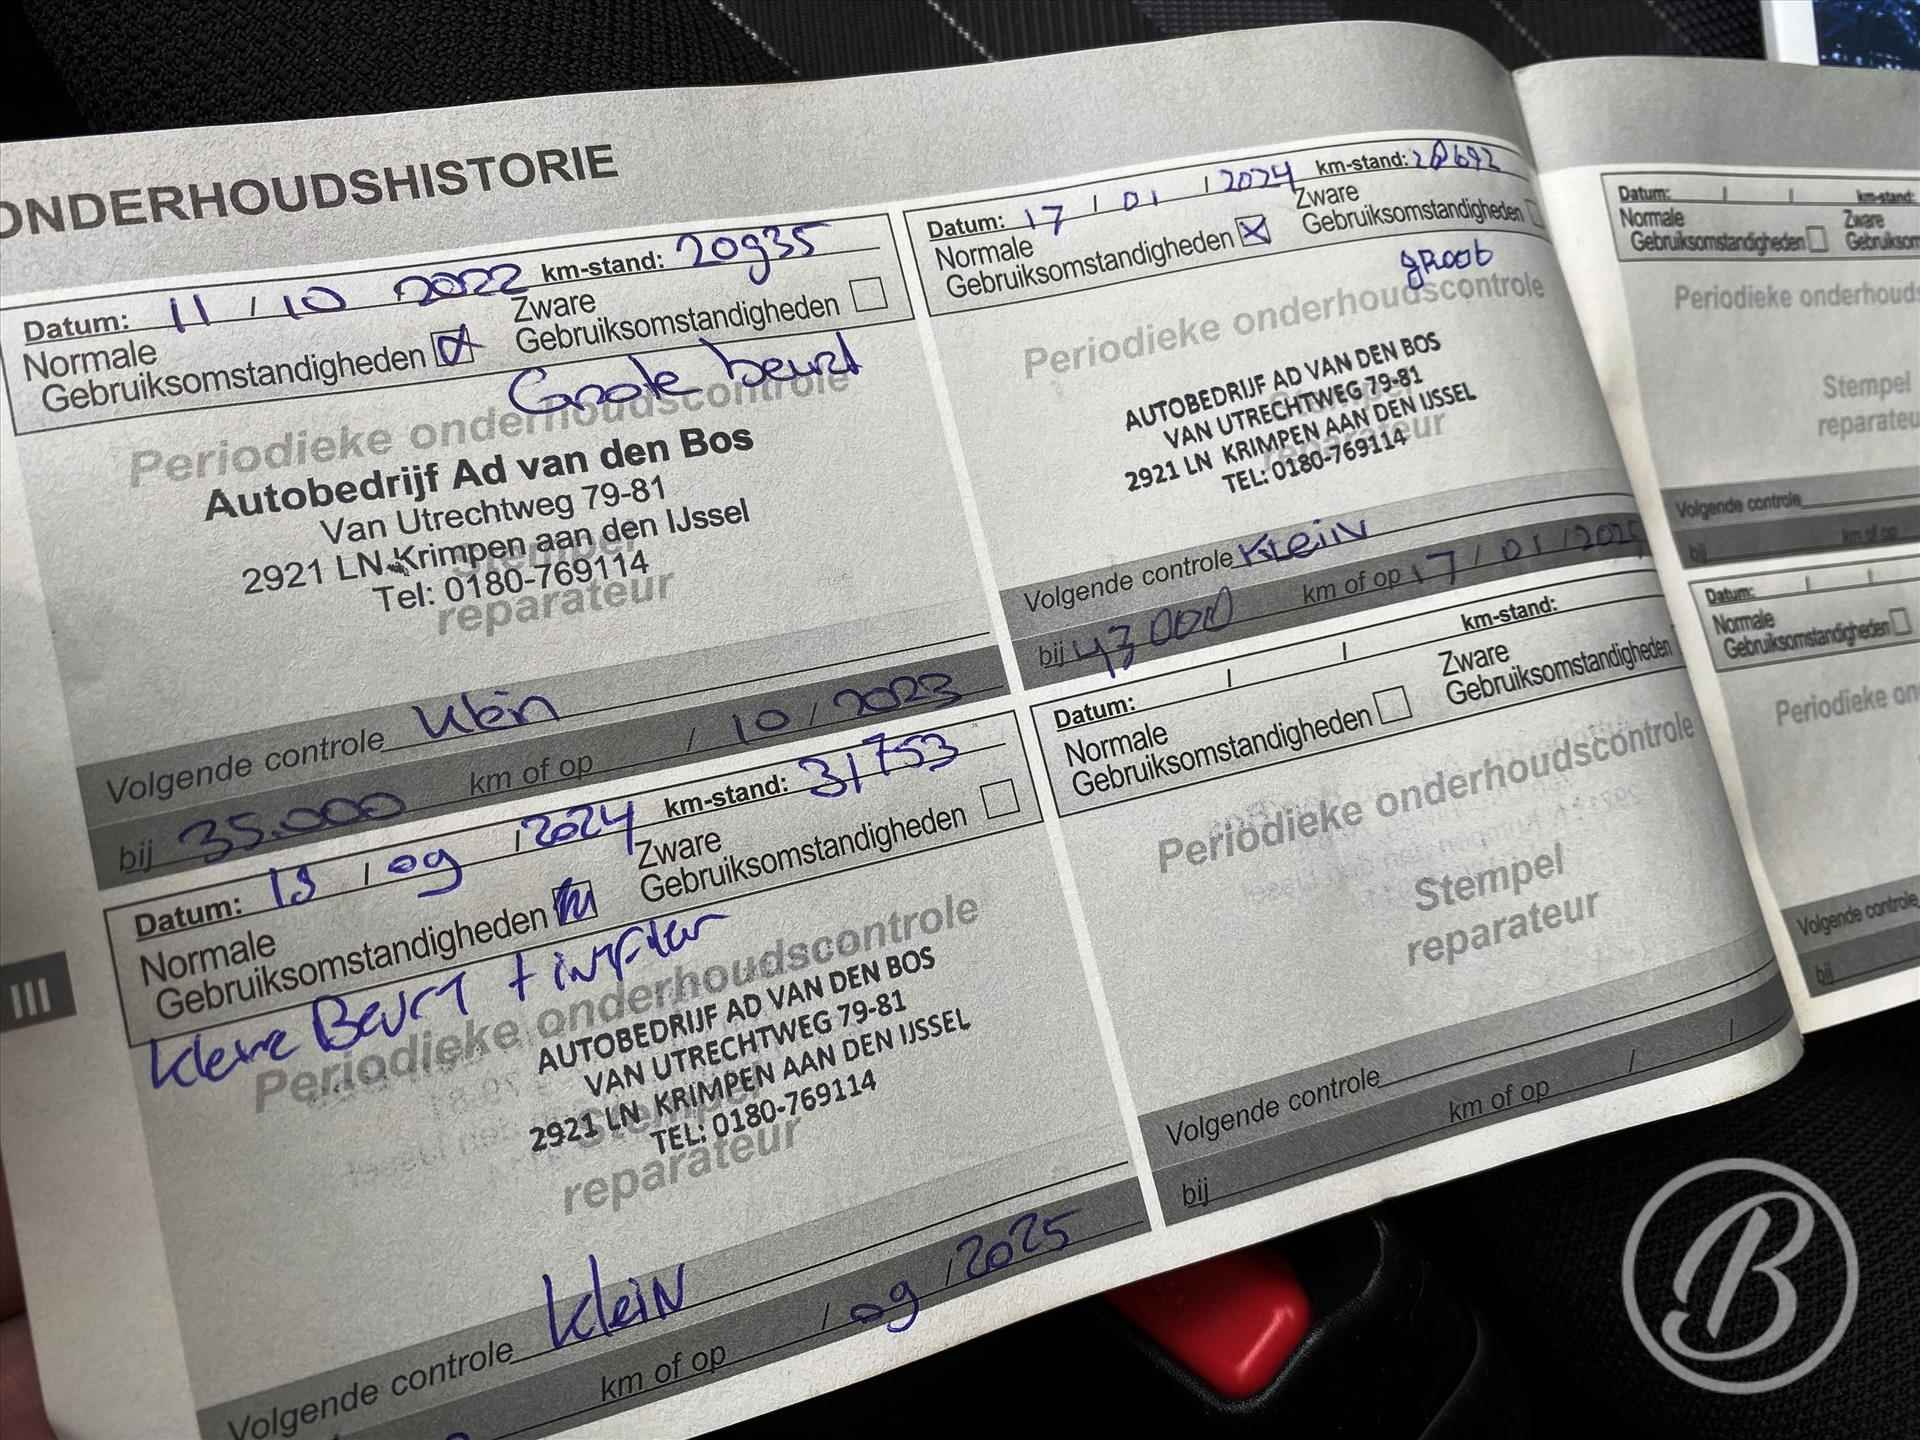 ONDERHOUDSHISTORIE
Datum: 11 / 10 2022 km-stand: 20935
Normale Gebruiksomstandigheden
Zware Gebruiksomstandigheden
Grote beurt
Periodieke onderhoudscontrole
Autobedrijf Ad van den Bos
Van Utrechtweg 79-81
2921 LN Krimpen aan den IJssel
Tel: 0180-769114
Stempel
reparateur
Volgende controle klein
bij 35.000 km of op / 10 / 2023
Datum: 13 / 09 / 2024 km-stand: 31753
Normale Gebruiksomstandigheden
Zware Gebruiksomstandigheden
kleine Beurt +
Periodieke onderhoudscontrole
AUTOBEDRIJF AD VAN DEN BOS
VAN UTRECHTWEG 79-81
2921 LN KRIMPEN AAN DEN IJSSEL
TEL: 0180-769114
Stempel
reparateur
Volgende controle klein
km of op / 09 / 2025
Datum: 17 / 01 / 2024 km-stand:
Normale Gebruiksomstandigheden
Zware Gebruiksomstandigheden
groot
Periodieke onderhoudscontrole
AUTOBEDRIJF AD VAN DEN BOS
VAN UTRECHTWEG 79-81
2921 LN KRIMPEN AAN DEN IJSSEL
TEL: 0180-769114
reparateur
Volgende controle klein
bij 43000 km of op 17 / 01 / 2025
Datum: / / km-stand:
Normale Gebruiksomstandigheden
Zware Gebruiksomstandigheden
Periodieke onderhoudscontrole
Stempel
reparateur
Volgende controle
bij km of op / /
III
Datum: / / km-stand:
Normale Gebruiksomstandigheden
Zware
Periodieke
Stempel
Volgende controle
bij km of op
Datum: /
Normale Gebruiksomstandigheden
Periodieke
Volgende controle
bij
B